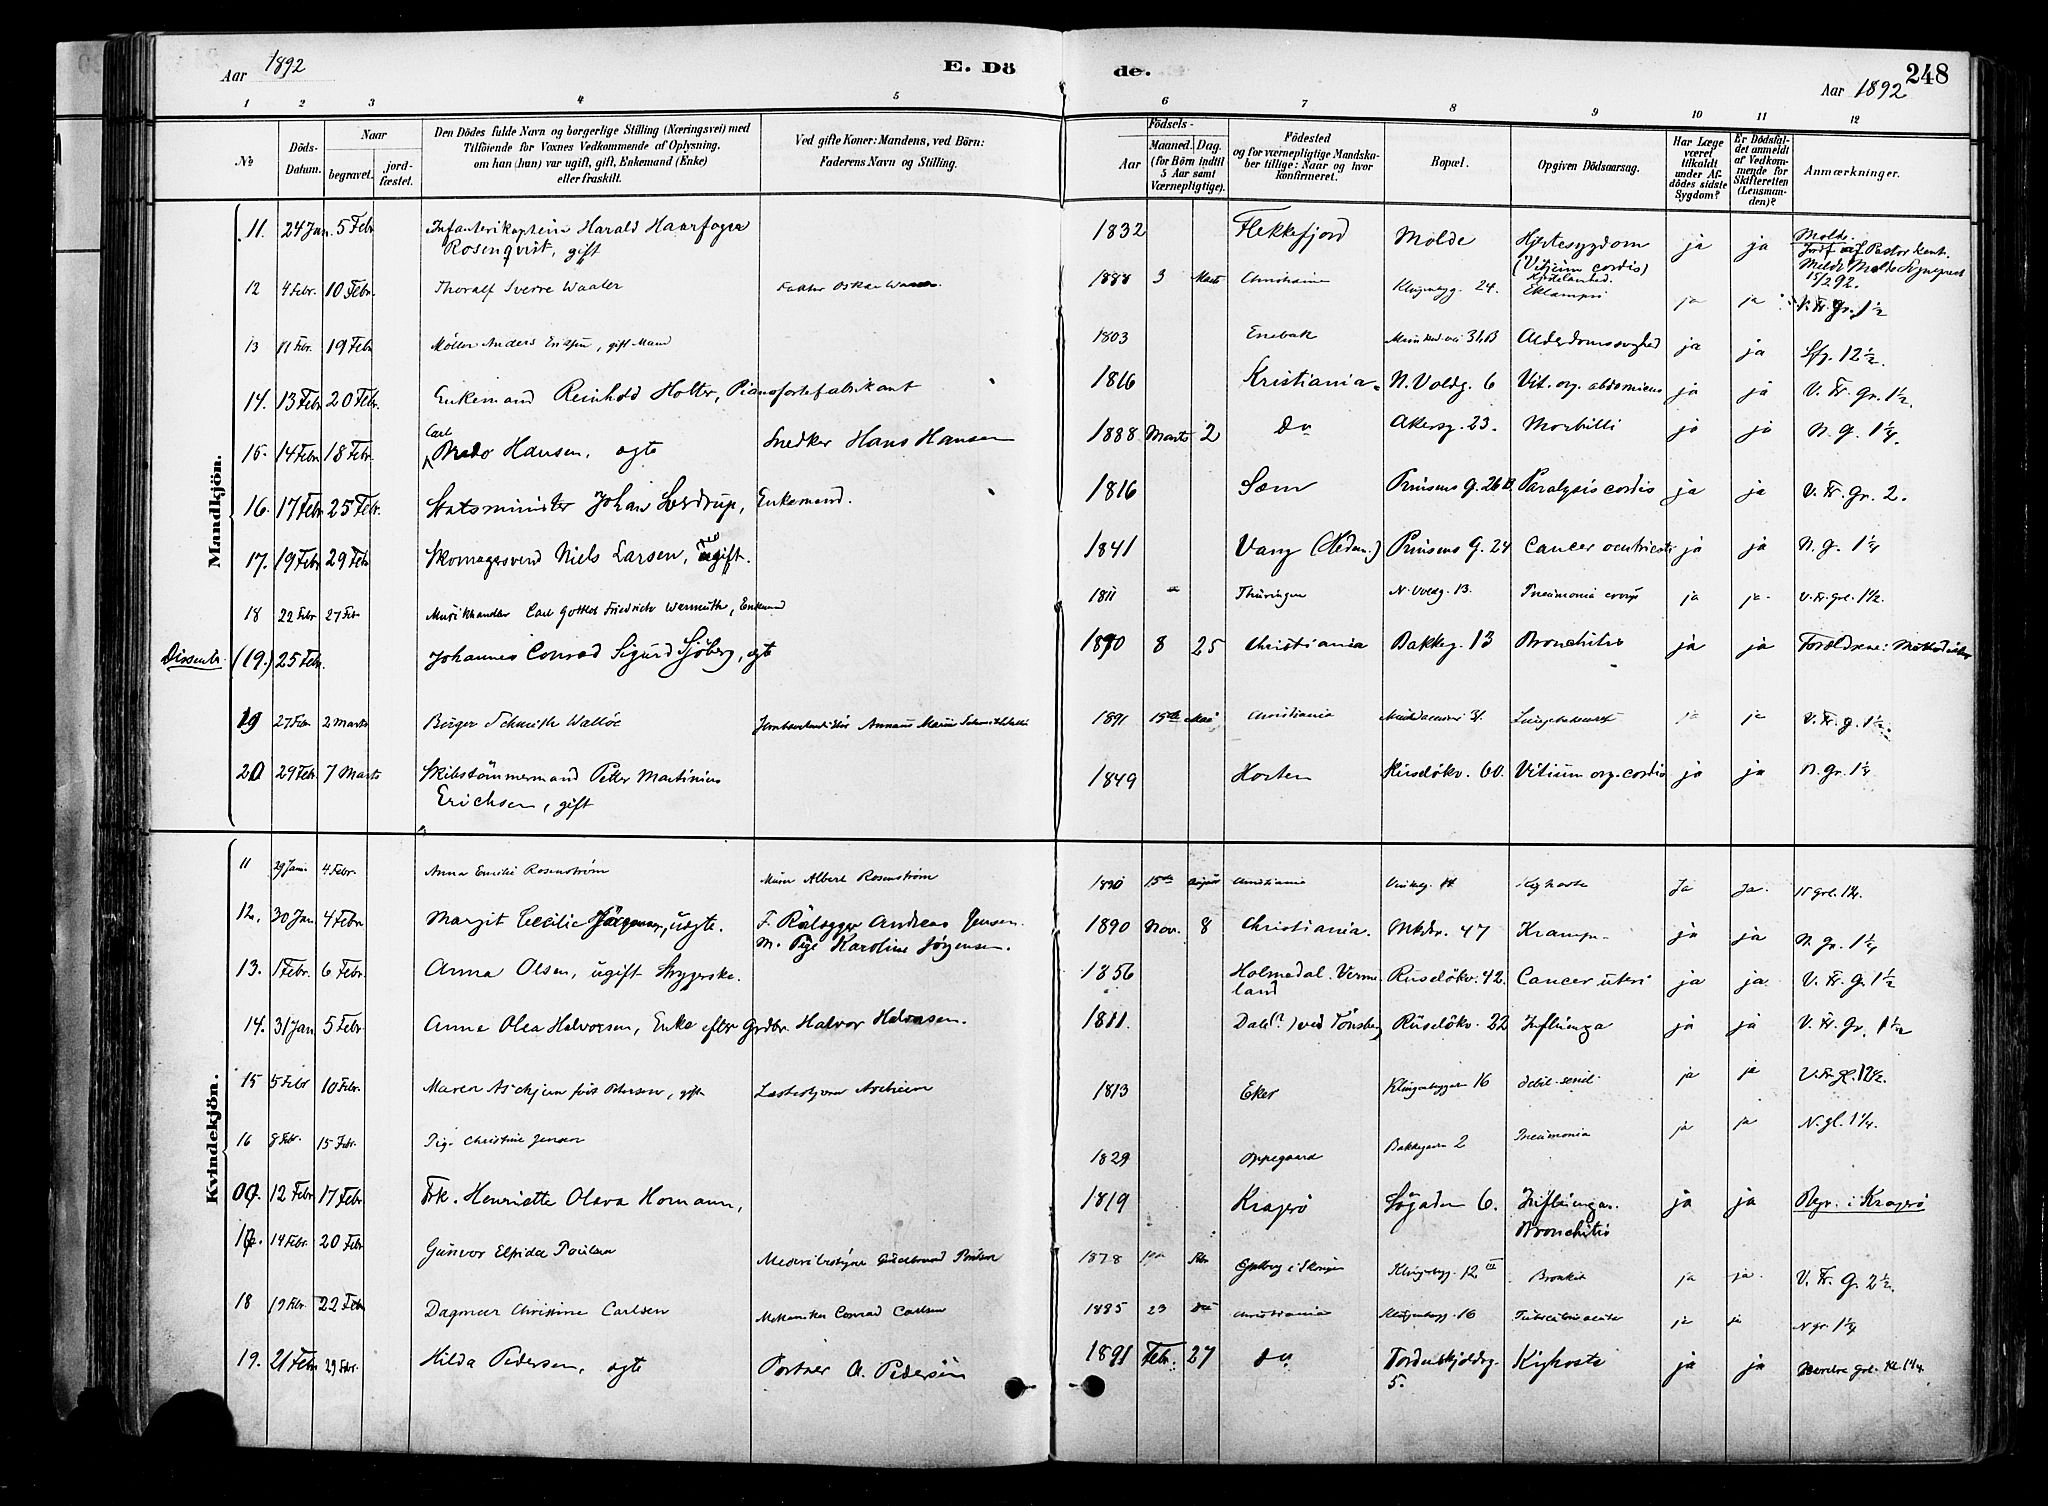 Aar 1892
E. Dö
de.
248
Aar 1892
1 2 3 4 5 6 7 8 9 10 11 12
No
Döds-Datum.
Naar
begravet.
jord-fæstet.
Den Dödes fulde Navn og borgerlige Stilling (Næringsvei) med
Tilföiende for Voxnes Vedkommende af Oplysning,
om han (hun) var ugift, gift, Enkemand (Enke)
eller fraskilt.
Ved gifte Koner: Mandens, ved Börn:
Faderens Navn og Stilling.
Födsels-
Aar
Maaned. Dag.
(for Börn indtil
5 Aar samt
Værnepligtige).
Födested
og for værnepligtige Mandska-
ber tillige: Naar og hvor
konfirmeret.
Bopæl.
Opgiven Dödsaarsag.
Har Læge
været
tilkaldt
under Af-
dödes sidste
Sygdom?
Er Dödsfal-
det anmeldt
af Vedkom-
mende for
Skifteretten
(Lensman-
den)?
Anmærkninger.
Mandkjön.
11. 24 Jan 5 Febr Infanterikaptein Harald Haarfager 1832 Flekkefjord Molde Hjertesygdom ja ja Molde.
Rosenqvist, gift (Vitium cordis)
12 4 Febr. 10 Febr. Thoralf Sverre Waaler 1888 3 Marts Christiania Klingenbgg. 24. Eklampsi ja ja V. Fr. Gr. 1 1/2
13 11 Febr. 19 Febr Møller Anders Eriksen, gift Mand 1803 Enebak 31B Alderdomssvaghed ja ja 12 1/2.
14. 13 Febr 20 Febr. Enkemand Reinhold Holter, Pianofortefabrikant 1816 Kristiania. N. Voldg. 6 Vit. org. abdominis ja ja V. Fr. Gr. 1 1/2.
15. 14 Febr 18 Febr. Carl Hansen, ægte Snedker Hans Hansen 1888 Marts 2 Do Akersg. 23. Morbilli ja ja N. G. 1 1/4.
16. 17 Febr 25 Febr. Statsminister Johan Sverdrup, Enkemand. 1816 Sæm Prinsens G. 26B Paralysis cordis ja ja V. Fr. Gr. 2.
17. 19 Febr 29 Febr Skomagersvend Niels Larsen, ugift. 1841 Vang (Hedem.) Prinsens G. 24 Cancer ventriculi ja ja N. G. 1 1/4
18 22 Febr 27 Febr Musikhandler Carl Gottlob Friedrich Warmuth, Enkemand 1811 Thüringen N. Voldg. 13. Pneumonia ja ja V. Fr. Grl. 1 1/2.
Dissenter. (19.) 25 Febr. Johannes Conrad Sigurd Sjöberg, ægte 1890 8 25 Christiania Bakkeg. 13 Bronchitis ja ja Forældrene: Methodister
19 27 Febr 2 Marts Birger Schmidt Walløe 1891 15de Mai Christiania 31. ja ja V. Fr. G. 1 1/2.
20 29 Febr. 7 Marts Skibstömmermand Petter Martinius 1849 Horten Ruselökv. 60. Vitium org. cordis ja ja N. Gr. 1 1/4
Erichsen, gift
Kvindekjön.
11 29 Jan. 4 Febr. Anna Emilie Rosenstrøm Murer Albert Rosenstrøm 1890 15de August Christiania Kighoste Ja Ja. N Grl. 1 1/4.
12. 30 Jan 4 Febr. Margit Cecilie Jörgensen, uægte. F. Rølægger Andreas Jensen. 1890 Nov. 8 Christiania. Mkdv. 47 Krampe ja ja N. Gr. 1 1/4
M. Pige Karoline Jørgensen.
13. 1 Febr. 6 Febr. Anna Olsen, ugift Strygerske. 1856 Holmedal. Verm- Ruselökv. 42. Cancer uteri ja ja V. Fr. G. 1 1/2
land
14. 31 Jan 5 Febr. Anne Olea Halvorsen, Enke efter Grdbr. Halvor Halvorsen. 1811. Dal (?) ved Tönsberg Ruselökv. 22 Influenza ja ja V. Fr. Gr. 1 1/2
15 5 Febr 10 Febr. Maren Aschjem født Petersen, gift 1813 Eker Klingenbeggaden 16 debil. senil. ja ja V. Fr. gl. 1 1/2.
16 8 Febr. 15 Febr. Pige Christine Jensen 1829 Oppegaard Bakkegaden 2 Pneumonia ja ja N. gl. 1 1/4.
12 Febr 17 Febr Frk. Henriette Olava Homann, 1819 Kragerö Søgaden 6. Influenza. ja ja Begr. i Kragerö
Bronchitis
14 Febr. 20 Febr Gunvor Elfrida Paulsen 1878 Klingenbgg. 12 III ja ja. V. Fr. G. 2 1/2.
18 19 Febr. 22 Febr Dagmar Christine Carlsen Mekaniker Conrad Carlsen 1885 23 Christiania Klingenbgg. 16 ja ja N gr. 1 1/4
19. 21 Febr 29 Febr. Hilda Pedersen, ægte Portner A. Pedersen 1891 Febr. 27 do Tordenskjoldsg. Kighoste ja ja Nordre Grl. Kl. 1 1/4
5.